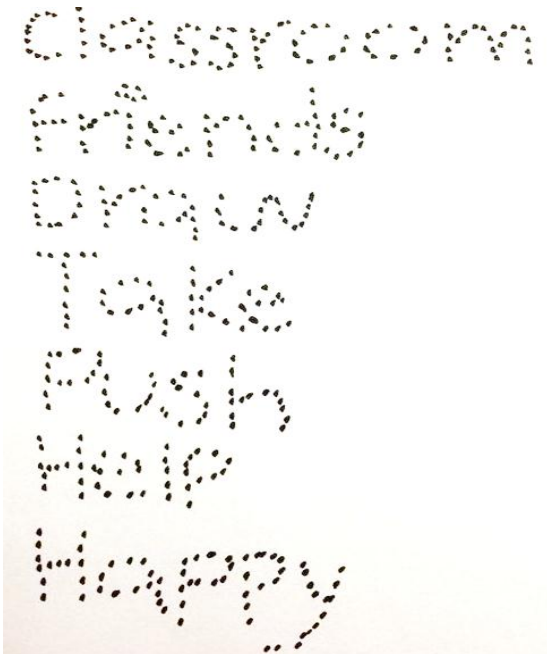 Classroom
friends
Draw
Take
Push
Help
Happy